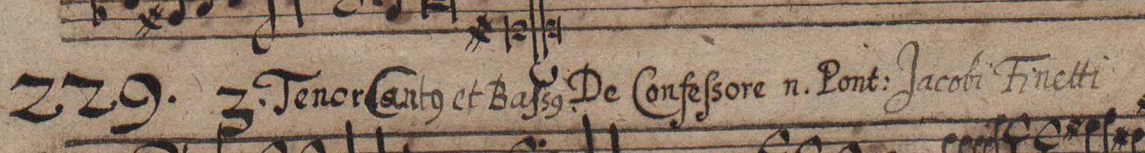 229. 3. Tenor Cantꝯ et Bassꝯ. De Confeſsore n. Pont: Jacobi Finetti